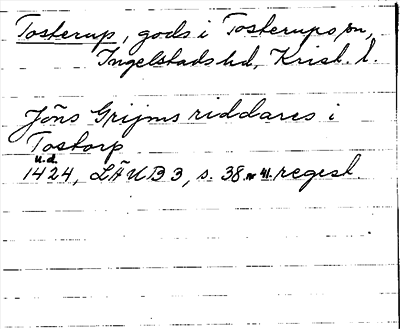 Tosterup, gods i Tosterups sn,
Ingelstads hd, Krist. l.
Jöns Grijms riddares i
Tostorp
u.d.
1424, LÄUB 3, s. 38 nr 41. regest.